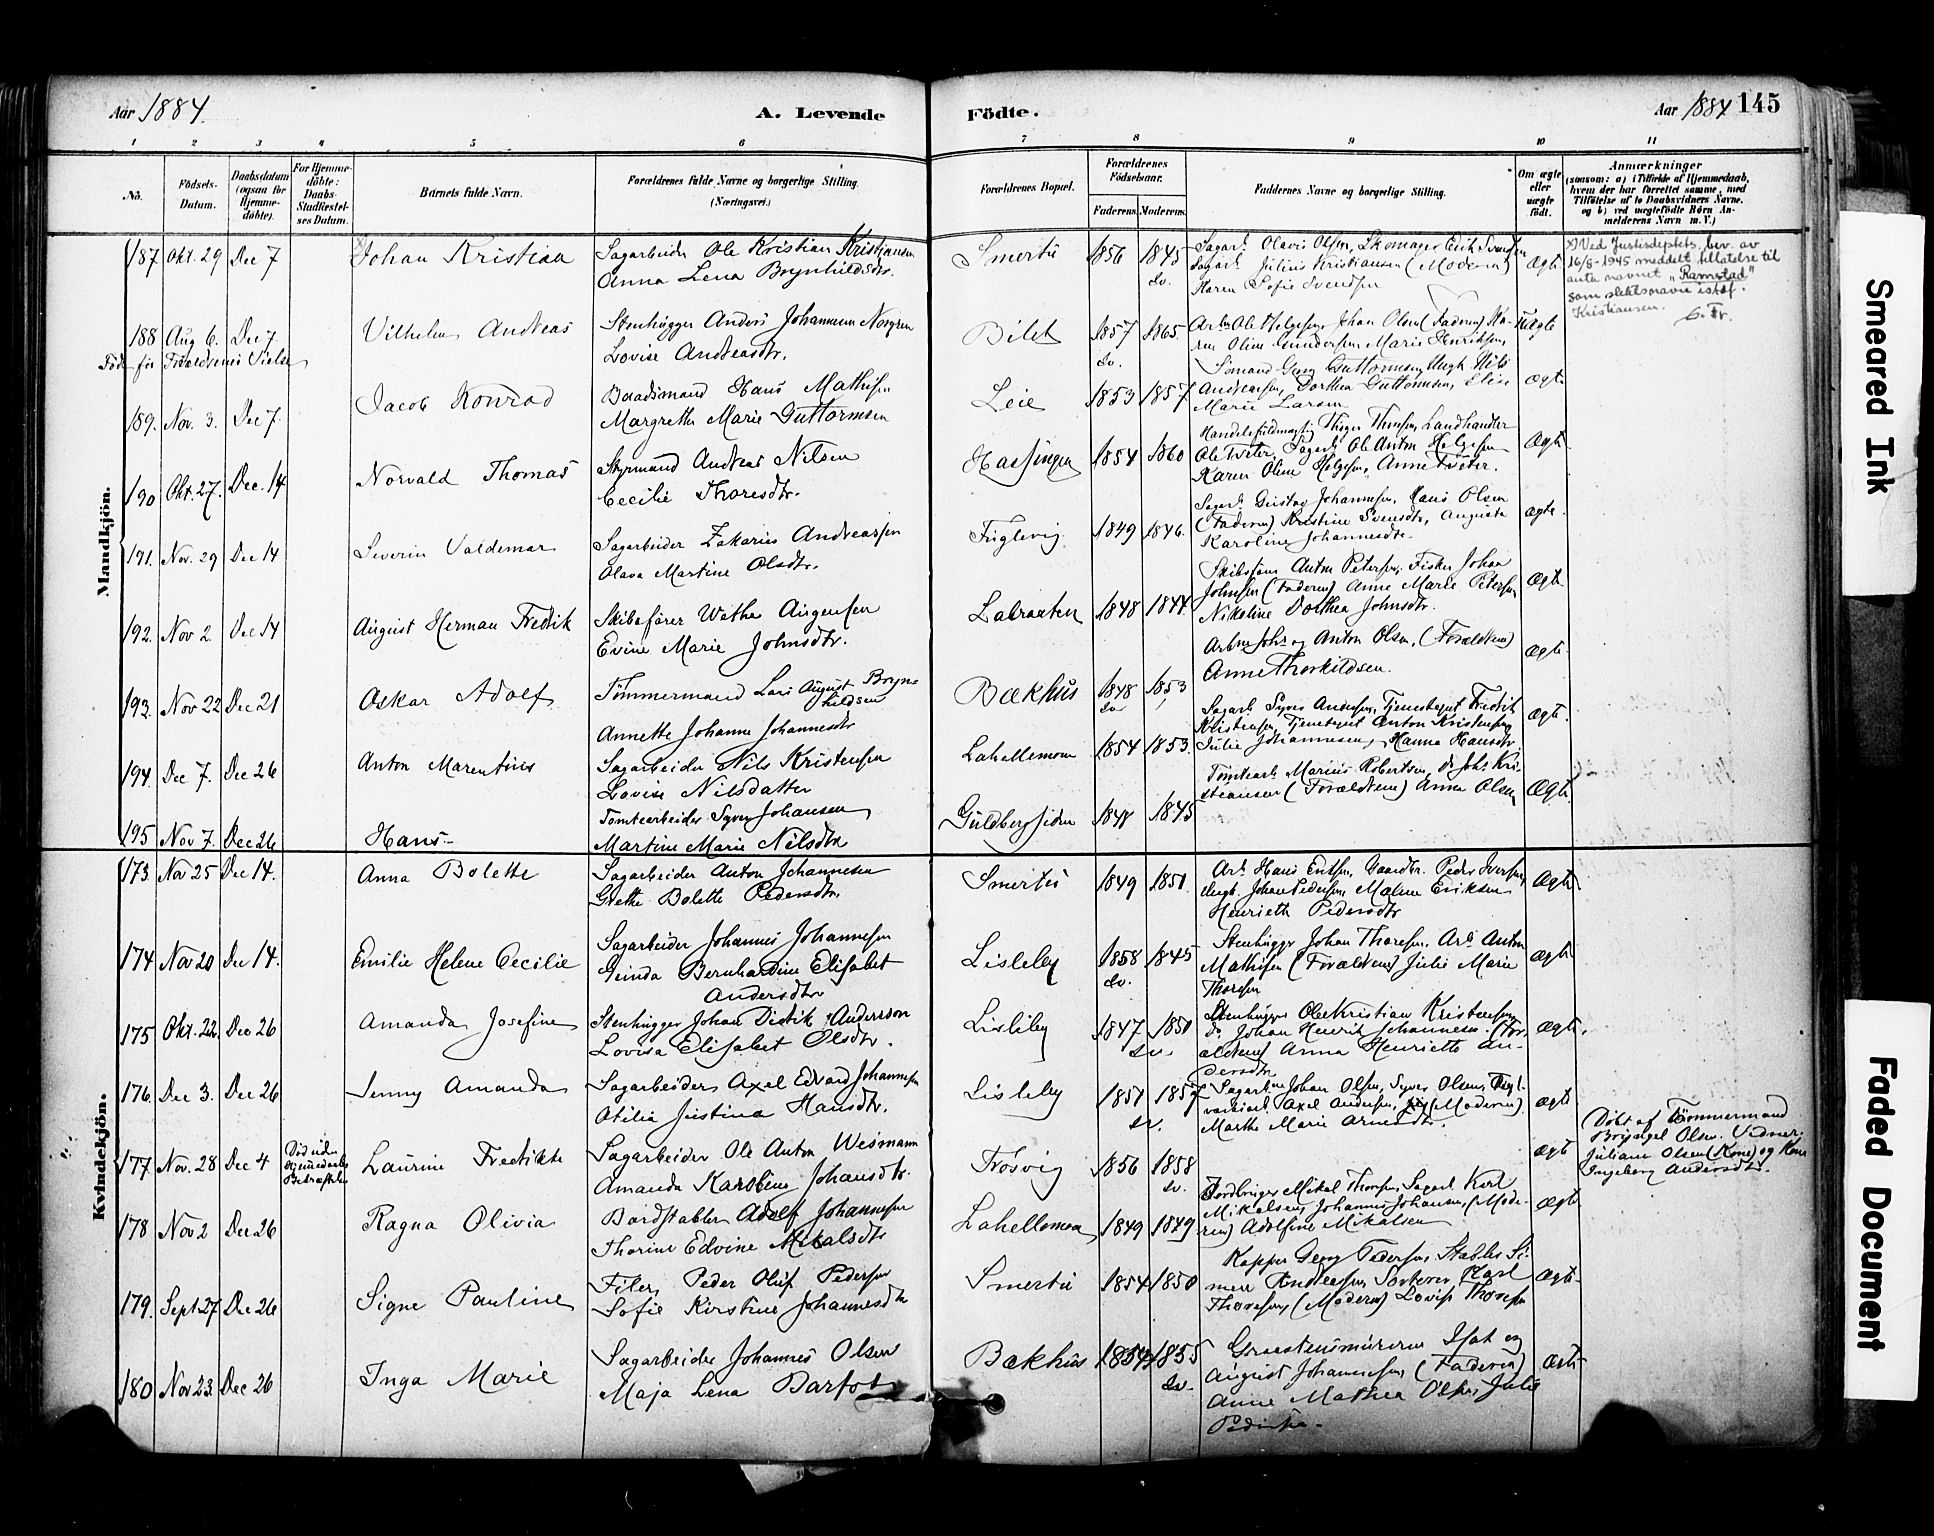 Aar 1884.
A. Levende
Födte.
Aar 1884 145
1 2 3 4 5 6 7 8 9 10 11
No.
Födsels-
Datum.
Daabsdatum
(ogsaa for
Hjemme-
döbte).
For Hjemme-
döbte:
Daabs-
Stadfæstel-
ses Datum.
Barnets fulde Navn.
Forældrenes fulde Navne og borgerlige Stilling.
(Næringsvei.)
Forældrenes Bopæl.
Forældrenes
Födselsaar.
Faderens. Moderens.
Faddernes Navne og borgerlige Stilling.
Om ægte
eller
uægte
födt.
Anmærkninger
(saasom: a) i Tilfælde af Hjemmedaab,
hvem der har forrettet samme, med
Tilföielse af to Daabsvidners Navne,
og b) ved uægtefödte Börn An-
melderens Navn m. V.)
Mandkjön.
187 Okt. 29 Dec 7 Johan Kristian
Sagarbeider Ole Kristian Kristiansen
Anna Lena Brynhildsdtr.
Smertu 1856 1845 sv.
Sagarb. Olavis Olsen, Skomager Erik Svendsen
Sagarb. Julius Kristiansen (Moderen)
Karen Sofie Svendsen
Ægte
x) Ved Justisdeptets bev. av
16/8-1945 meddelt tillatelse til
anta navnet "Ramstad"
som slektsnavn istedf.
Kristiansen.
188 Aug 6. Dec 7. Vilhelm Andreas
Stenhugger Anders Johannesen Norgren
Lovise Andreasdtr.
Födt før Forældrenes Vielse
Bilet 1857 sv. 1865.
Arb. Ole Helgesen, Johan Olsen (Faderen) Ka-
ren Oline Gundersen, Marie Henriksen,
Uægte
189. Nov. 3. Dec 7. Jacob Konrad
Baadsmand Hans Mathisen
Margrethe Marie Guttormsen
Leie 1853 1857
Sömand Georg Guttormsen, Ungk. Nils
Andreassen, Dorthea Guttormsen, Elise
Marie Larsen.
Ægte
190 Okt. 27. Dec. 14 Norvald Thomas
Styrmand Andreas Nilsen
Cecilie Thoresdtr.
Hassingen 1854 1860
Handelsfuldmægtig Thoger Thorsen, Landhandler
Ole Tveter, Sagarb. Ole Anton Helgesen
Karen Oline Helgesen, Anne Tveter.
Ægte
191. Nov. 29 Dec 14 Severin Valdemar
Sagarbeider Zakarias Andreassen
Olava Martine Olsdtr.
Fuglevig 1849 1846.
Sagarb. Gustav Johannesen, Hans Olsen
(Faderen) Kristine Svensdtr, Augusta
Karoline Johannesdtr.
ægte.
192. Nov 2 Dec 14 August Herman Fredrik
Skibsfører Wethe Augensen
Evine Marie Johnsdtr.
Labraaten 1848 1844.
Skibsförer Anton Petersen, Fisker Johan
Johnsen (Faderen) Anne Marie Petersen,
Nikoline Dorthea Johnsdtr.
ægte
193. Nov 22 Dec 21 Oskar Adolf
Tömmermand Lars August Bryn-
hildsen
Annette Johanne Johannesdtr
Bækhus 1848 sv 1853
Arbm Johs og Anton Olsen, (Forældrene)
Anne Thorkildsen.
ægte.
194. Dec 7. Dec 26 Anton Marentius
Sagarbeider Nils Kristensen
Lovise Nilsdatter
Lahellemoen 1854 1853.
Sagarb. Syver Andersen, Tjenestegut Fredrik
Kristensen, Tjenestegut Anton Kristensen,
Julie Johannesen, Hanna Hansdtr.
ægte.
195 Nov 7. Dec 26 Hans
Tomtearbeider Syver Johansen
Martine Marie Nilsdtr
Guldbergsiden 1848 1845
Tomtearb. Marius Robertsen, do Johs Kri-
stiansen (Forældrene) Anna Olsen
Ægte.
Kvindekjön.
173. Nov 25 Dec 14. Anna Bolette
Sagarbeider Anton Johannesen
Grethe Bolette Pedersdtr.
Smertu 1849 1851.
Arb. Hans Eriksen, Gaardbr. Peder Iversen,
Ungk. Johan Pedersen, Malene Eriksen
Henriette Pedersdtr
Ægte
174 Nov 20 Dec 14. Emilie Helene Cecilie
Sagarbeider Johannes Johannesen
Gunda Bernhardine Elisabet
Andersdtr
Lisleby 1858 sv. 1845
Stenhugger Johan Thoresen, Arb. Anton
Mathisen (Forældrene) Julie Marie
Thoresen
ægte
175 Okt. 22. Dec 26 Amanda Josefine
Stenhugger Johan Didrik Andersson
Lovisa Elisabet Olsdtr.
Lisleby 1847 1850 sv.
Stenhugger Ole Kristian Kristensen,
do Johan Henrik Johannesen. (For-
ældrene) Anna Henriette An-
dersdtr
ægte.
176. Dec 3. Dec 26 Jenny Amanda
Sagarbeider Axel Edvard Johannesen
Otilia Justina Hansdtr.
Lisleby 1851 sv. 1857
Sagarbne Johan Olsen, Syver Olsen, Tegl-
værksarb. Axel Andersen, (Moderen)
Marthe Marie Arnesdtr.
ægte
177. Nov. 28 Dec 4 Død uden
Hjemmedaabs
Bekræftelse
Laurine Fredrikke
Sagarbeider Ole Anton Wesmann
Amanda Karoline Johansdtr.
Trosvig 1856 1858 sv.
ægte
Döbt af Tömmermand
Brynjel Olsen. Vidner:
Juliane Olsen (Kone) og Kone
Ingeborg Andersdtr.
178 Nov 2 Dec 26 Ragna Olivia
Bordstabler Adolf Johannesen
Thorine Edvine Mikalsdtr
Lahellemoen 1849 1849
Bordbringer Mikal Thoresen, Sagarb. Karl
Mikalsen, Johannes Johansen, (Mode-
ren) Adolfine Mikalsen
ægte
179. Sept 27 Dec 26 Signe Pauline
Filer Peder Oluf Pedersen
Sofie Kirstine Johannesdtr
Smertu 1854 1850
Kopper Georg Pedersen, Stabler Si-
men Andreassen, Sorterer Karl
Thoresen, (Moderen) Lovise Thoresen
ægte.
180 Nov 23. Dec 26 Inga Marie
Sagarbeider Johannes Olsen
Maja Lena Barfot
Bækhus 1854 1855 sv.
Graastensmurerne Isak og
August Johannesen (Faderen)
Anne Mathea Olsen, Julie
Pedersen.
ægte
Smeared Ink
Faded Document